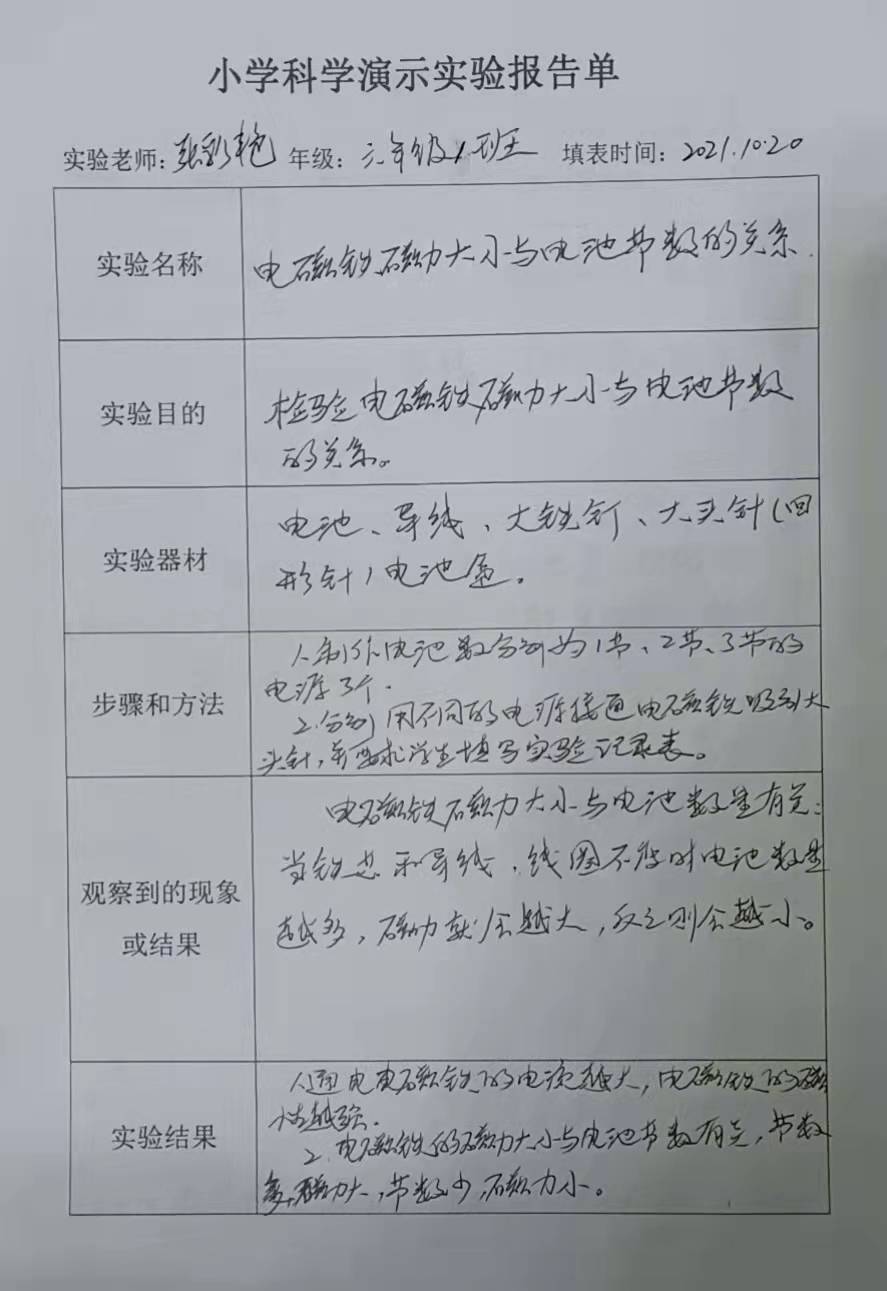 小学科学演示实验报告单
实验老师：张彩艳 年级：六年级1班 填表时间：2021.10.20
实验名称
电磁铁磁力大小与电池节数的关系.
实验目的
检验电磁铁磁力大小与电池节数
的关系。
实验器材
电池、导线、大铁钉、大头针（回
形针）电池盒。
步骤和方法
1.制作电池数分别为1节、2节、3节的
电源3个.
2.分别用不同的电源接通电磁铁吸引大
头针，并要求学生填写实验记录表。
观察到的现象
或结果
电磁铁磁力大小与电池数量有关：
当铁芯和导线，线圈不变时电池数量
越多，磁力就会越大，反之则会越小。
实验结果
1.通电电磁铁的电流越大，电磁铁的磁
性越强.
2.电磁铁的磁力大小与电池节数有关，节数
多，磁力大，节数少，磁力小。